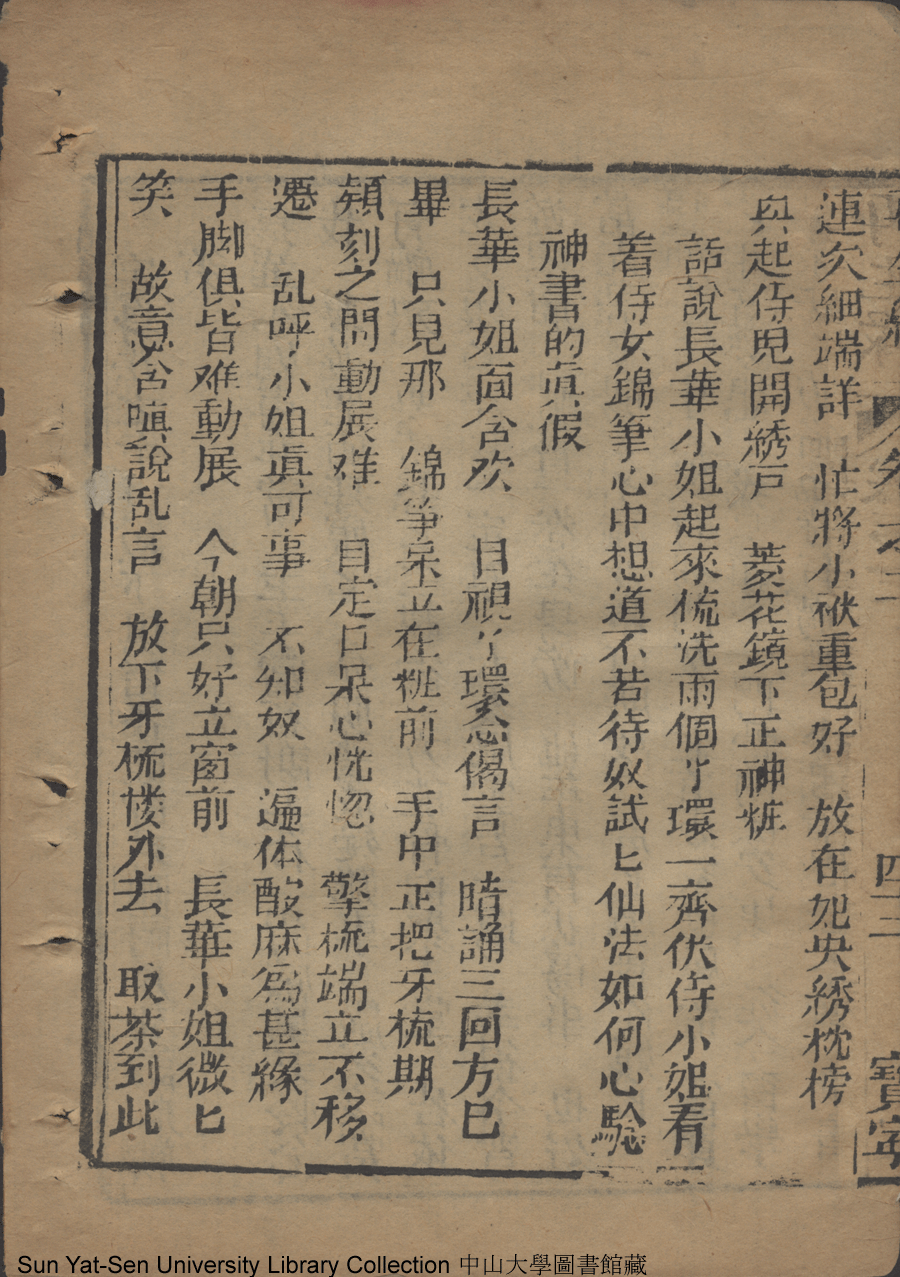 卷之二 四三 寶寧
連次細端詳 忙將小袱重包好 放在妃央綉枕榜
與起侍児開綉戸 菱花鏡下正神粧
話說長華小姐起來梳洗兩個丫環一齊伏侍小姐看
着侍女錦筆心中想道不若待奴試匕仙法如何心驗
神書的眞假
長華小姐面含欢 目視丫環念偈言 暗誦三回方巳
畢 只見那 錦筝呆立在粧前 手中正把牙梳期
頬刻之間動展难 目定口呆心恍惚 擎梳端立不移
遷 乱呼小姐眞可事 不知奴 遍体酸麻為甚緣
手脚俱皆难動展 今朝只好立窗前 長華小姐微匕
笑 故意含嗔說乱言 放下牙梳楼外去 取茶到此
Sun Yat-Sen University Library Collection 中山大學圖書館藏